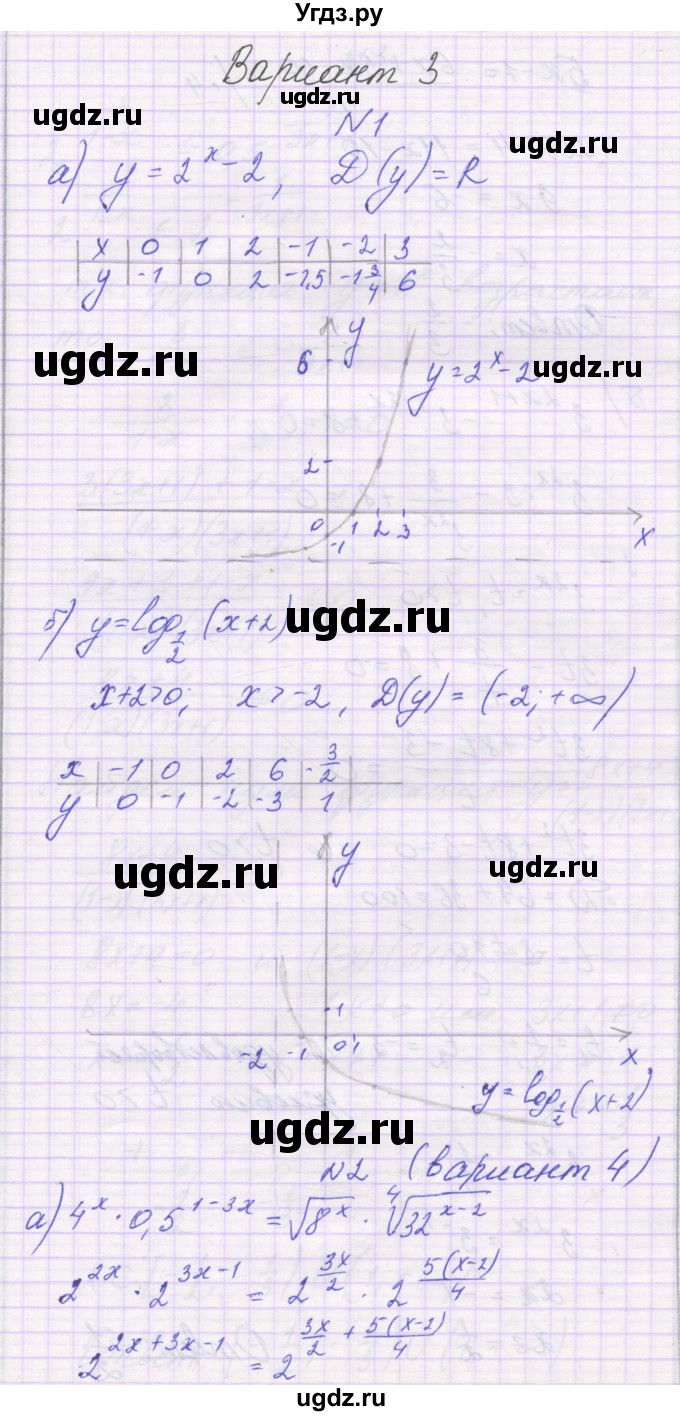 Угдз.ру
Вариант 3
ugdz.ru
ugdz.ru
N1
ugdz.ru
а) y = 2^x - 2, D(y) = R
x 0 1 2 -1 -2 3
y -1 0 2 -1,5 -1 3/4 6
ugdz.ru
y
6
y = 2^x - 2
ugdz.ru
2
0 1 2 3 x
-1
б) y = log_{1/2} (x+2)
ugdz.ru
x+2>0; x > -2, D(y) = (-2; +∞)
x -1 0 2 6 -3/2
y 0 -1 -2 -3 1
ugdz.ru
y
ugdz.ru
1
-2 -1 0 1 x
y = log_{1/2} (x+2)
ugdz.ru
N2 (вариант 4)
а) 4^x · 0,5^{1-3x} = √(8^x) · ⁴√(32^{x-2})
2^{2x} · 2^{3x-1} = 2^{3x/2} · 2^{5(x-2)/4}
2^{2x+3x-1} = 2^{3x/2 + 5(x-2)/4}
ugdz.ru
ugdz.ru